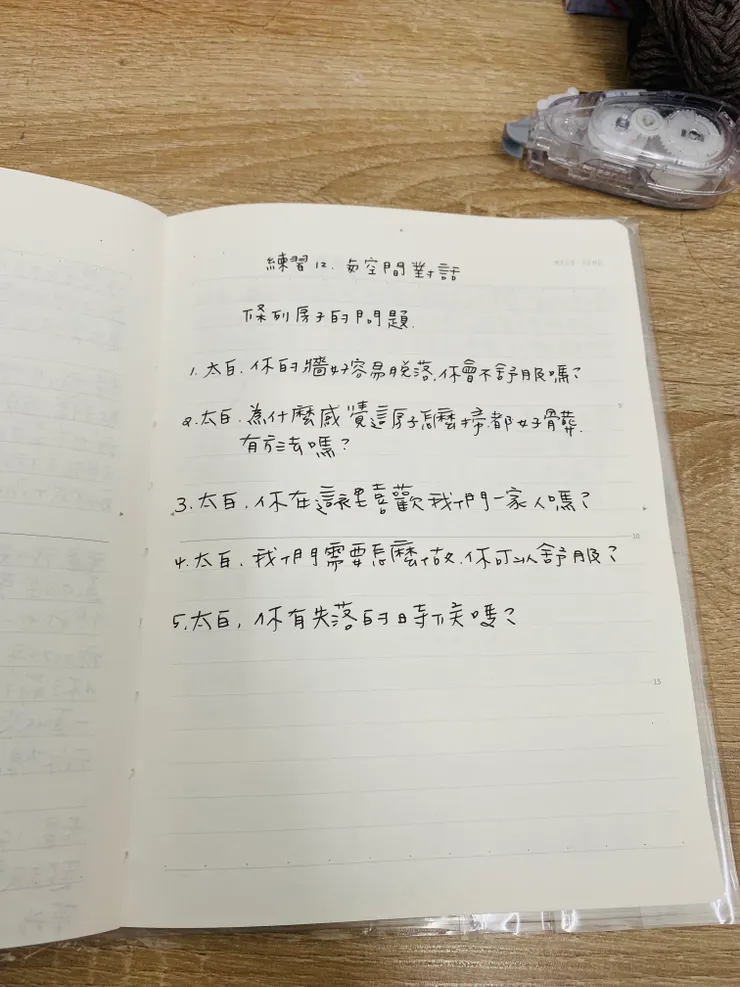 練習12. 與空間對話
條列房子的問題.
1. 太白. 你的牆好容易脫落, 你會不舒服嗎?
2. 太白. 為什麼感覺這房子怎麼掃都好骯髒.
有方法嗎?
3. 太白. 你在這裡喜歡我們一家人嗎?
4. 太白. 我們需要怎麼做. 你可以舒服?
5. 太白, 你有失落的時候嗎?
10
15